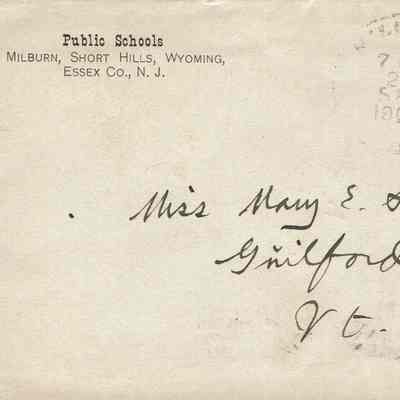 Public Schools
Milburn, Short Hills, Wyoming,
Essex Co., N. J.
Miss Mary E.
Guilford
Vt.